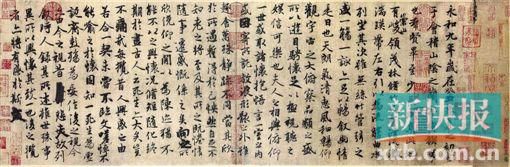 永和九年歲在癸
會稽山陰
羣賢畢
有崇山峻領茂林
湍暎帶左右
列坐其次雖無絲竹管弦之
盛一觴一詠亦足以暢叙幽情
是日也天朗氣清惠風和暢仰
觀宇宙之大俯察品類之盛
所以遊目騁懷足以極視聽之
娛信可樂也夫人之相與俯仰
一世或取諸懷抱悟言一室之內
或因寄所託放浪形骸之外雖
趣舍萬殊靜躁不同當其欣
於所遇暫得於己快然自足不
知老之將至及其所之既惓情
隨事遷感慨係之矣向之所
欣俛仰之閒以為陳迹猶不
能不以之興懷況脩短隨化終
期於盡古人云死生亦大矣豈
不痛哉每攬昔人興感之由
若合一契未嘗不臨文嗟悼不
能喻之於懷固知一死生為虛
誕齊彭殤為妄作後之視今
亦由今之視昔悲夫故列
叙時人錄其所述雖世殊事
異所以興懷其致一也後之攬
者亦將有感於斯文
新快报
xkb.com.cn